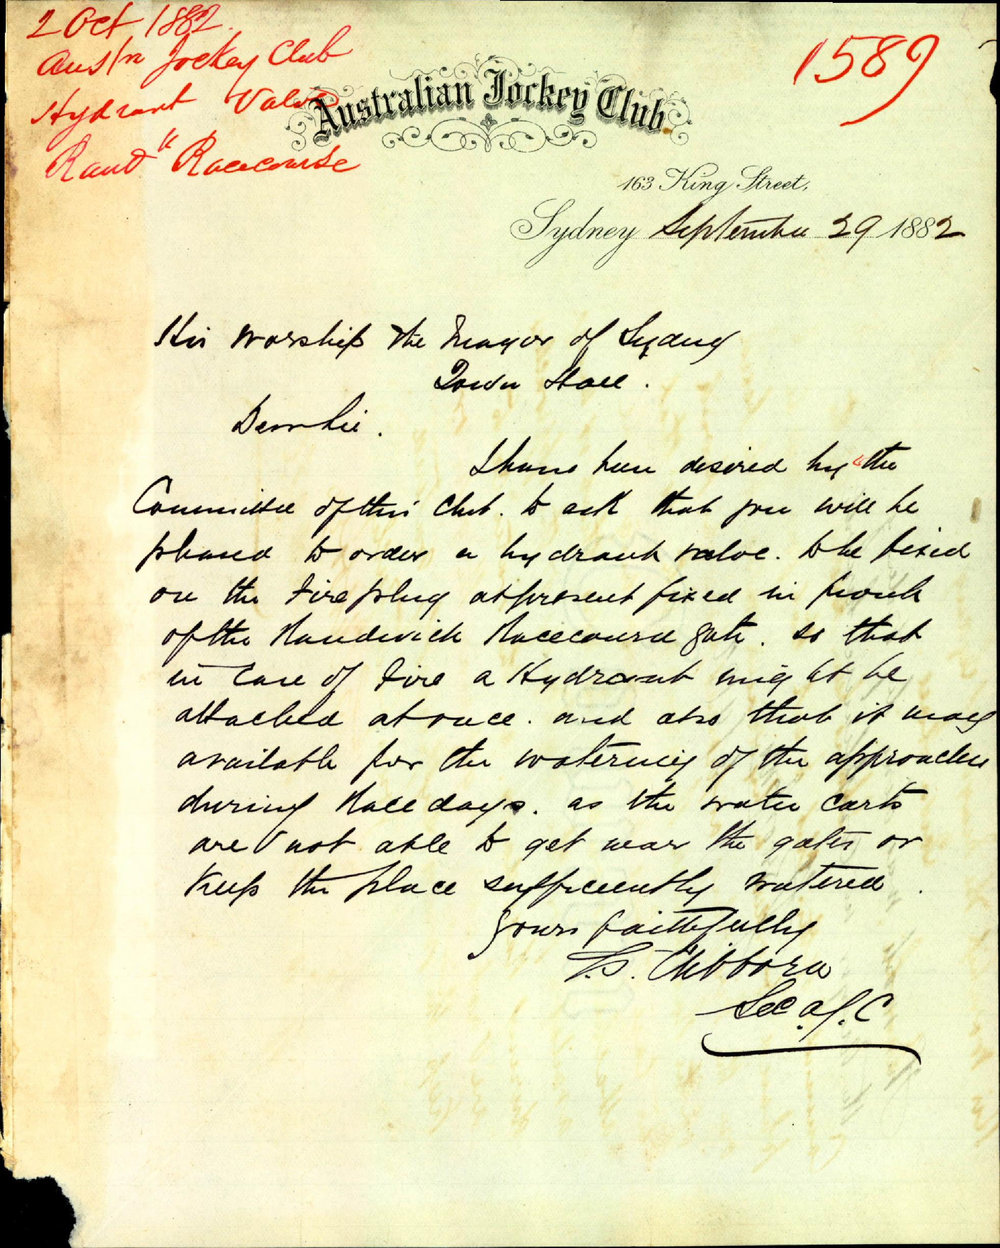 2 Oct 1882
Aus/n Jockey Club
Hydrant Valve
Rand "k" Racecourse
1589
Australian Jockey Club
163 King Street,
Sydney September 29 1882
His Worship the Mayor of Sydney
Town Hall.
Dear Sir.
I have been desired by the
Committee of this Club. to ask that you will be
pleased to order a hydrant valve. to be fixed
on the Fire plug at present fixed in front
of the Randwick Racecourse gate. so that
in Case of Fire a Hydrant might be
attached at once. and also that it may
available for the watering of the approaches
during Race days. as the water carts
are not able to get near the gates or
keep the place sufficiently watered.
Yours faithfully
T.S. Clibborn
Sec A.J.C